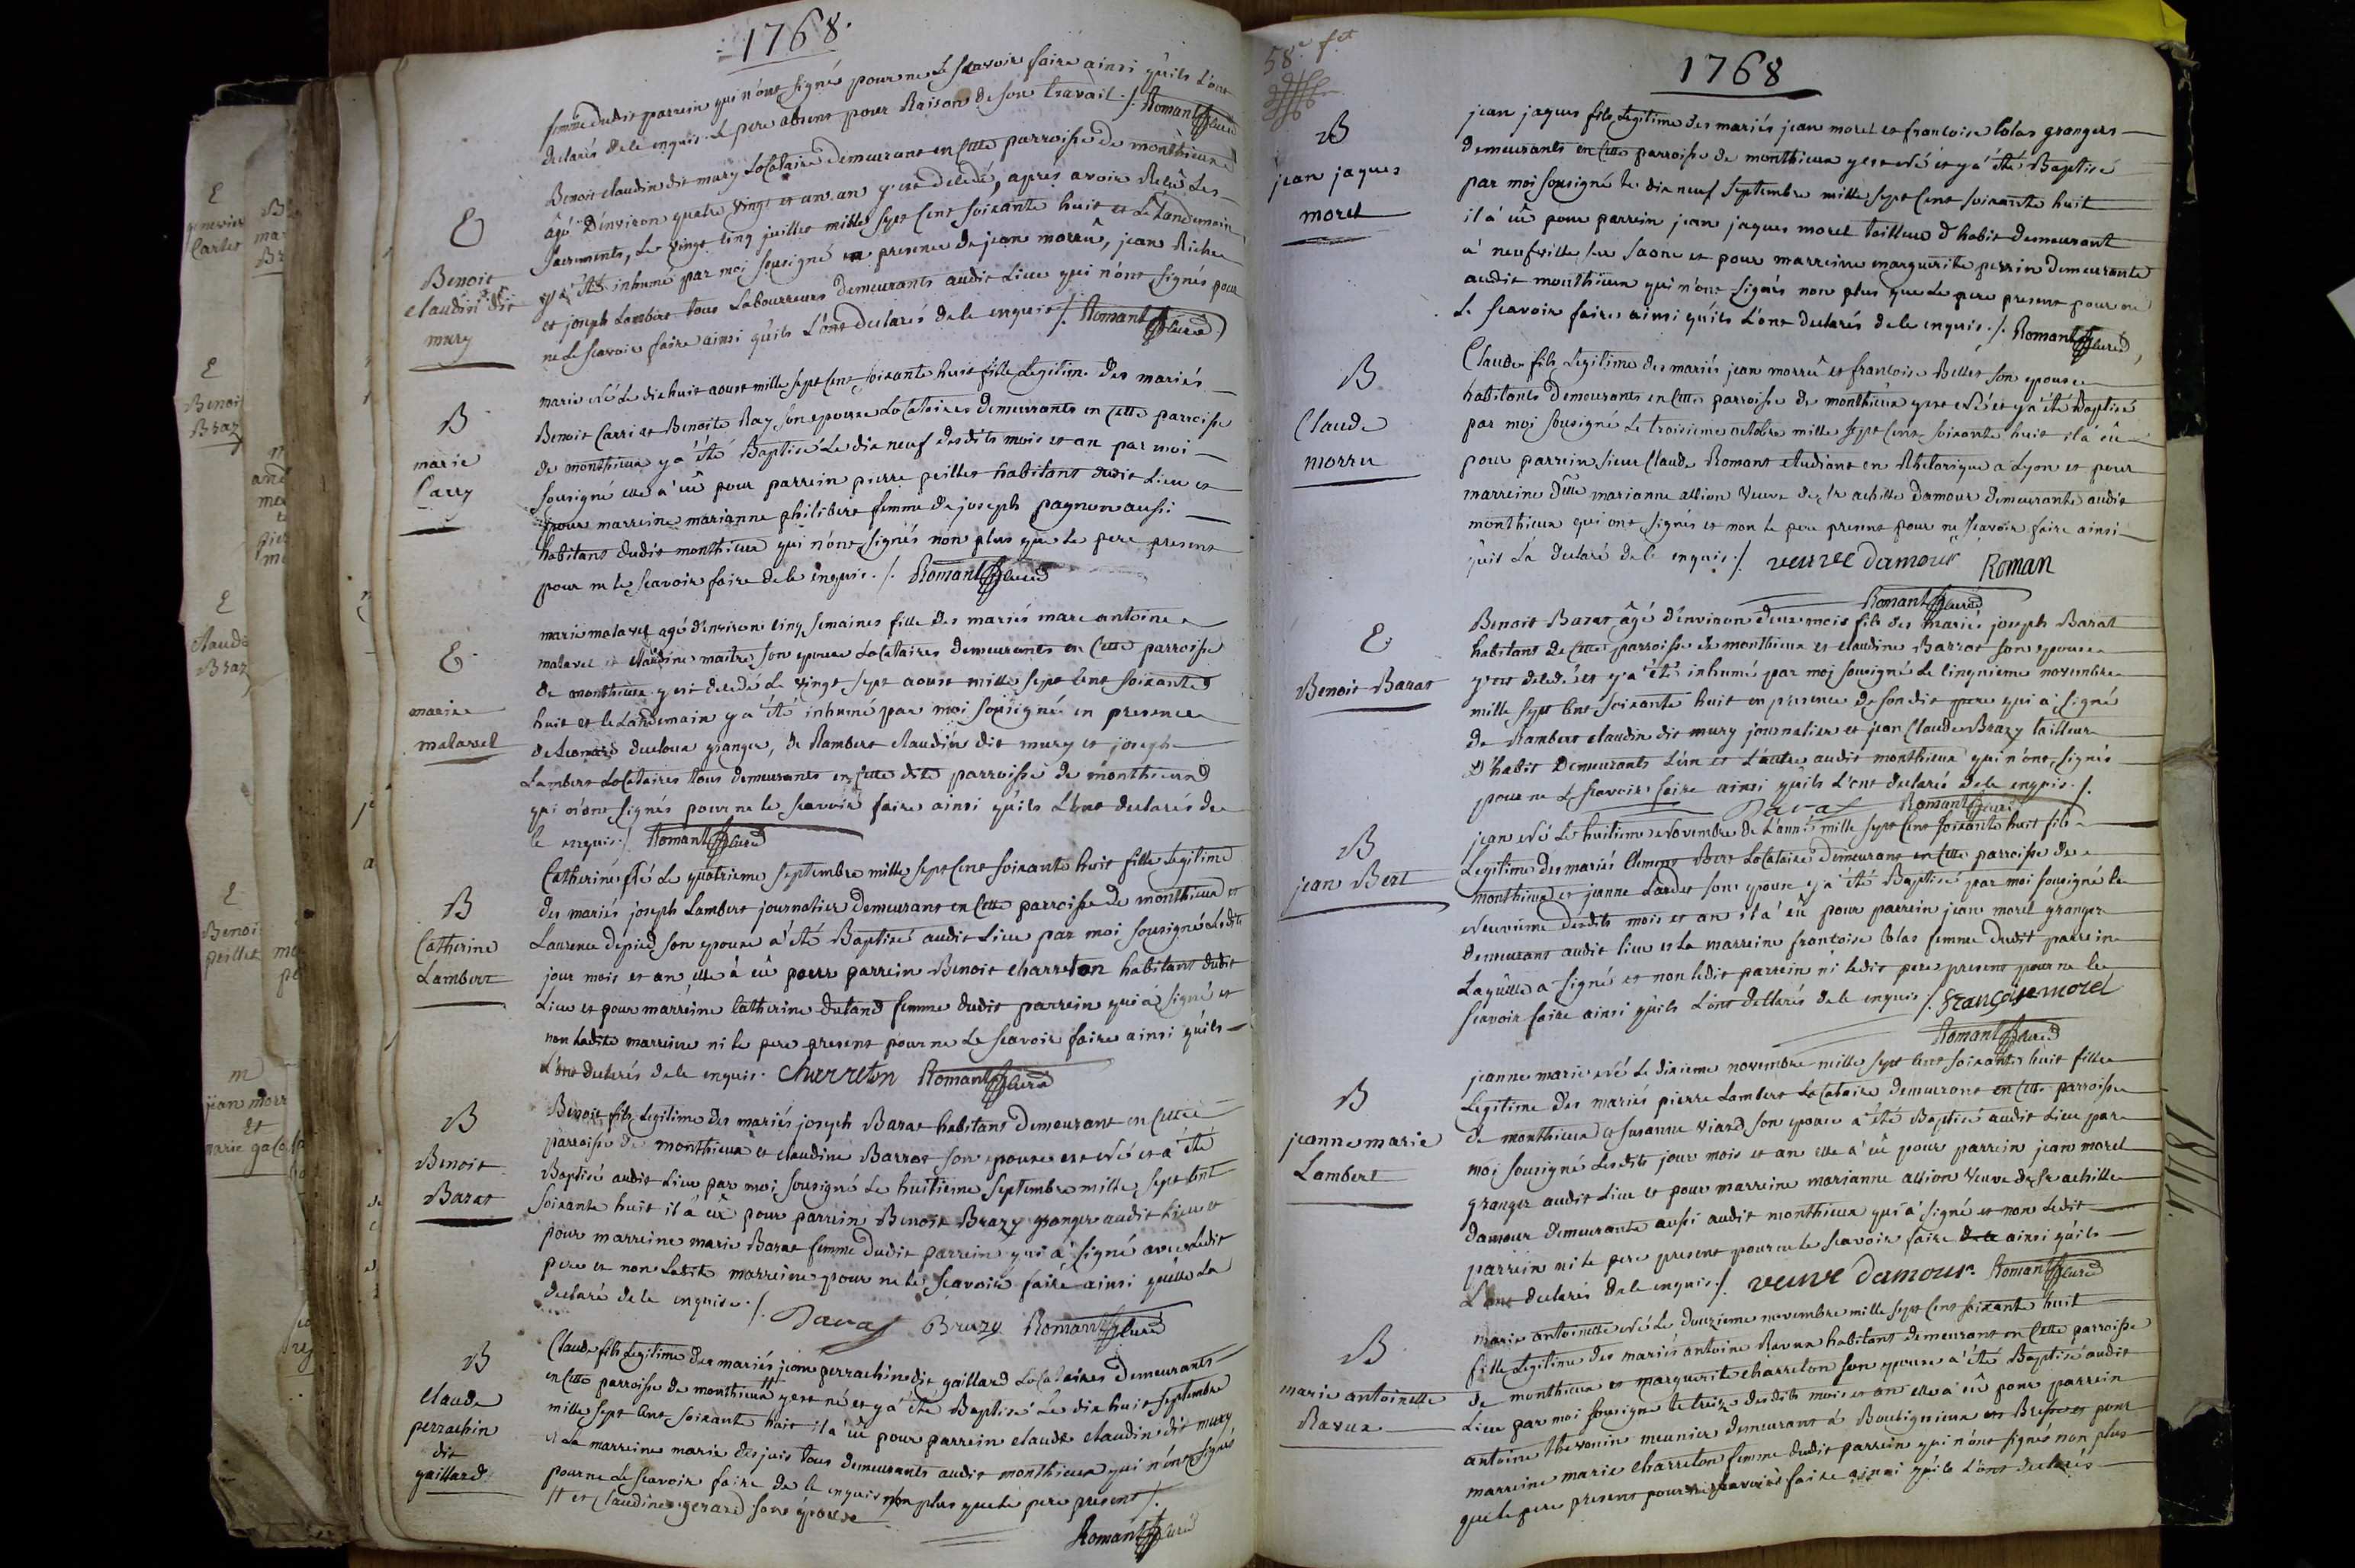 1768.
femme dudit parrein qui n'ont signé pour ne le sçavoir faire ainsi qu'ils L'ont
declarés de le enquis. Le pere absent pour Raison de son travail ./. Romant curé
E
Benoit
claudin dit
mury
Benoit claudin dit mury Locataire demeurant en Cette parroisse de monthieux
âgé d'environ quatre vingt et un an y est decedé, apres avoir Reçû Les
sacrements, Le vingt cinq juillet mille sept cent soixante huit et Le Landemain
y a été inhumé par moi sousigné en presence de jean morrû, jean Riche
et joseph Lambert tous Labourreurs demeurants audit Lieu qui n'ont signés pour
ne Le sçavoir faire ainsi qu'ils L'ont declarés de le enquis ./. Romant curé
B
marie
Carry
marie née Le dix huit aoust mille sept cent soixante huit fille Legitime des mariés
Benoit Carri et Benoite Ray son epouse Locataires demeurants en Cette parroisse
de monthieux y a été Baptisé Le dix neuf desdits mois et an par moi
sousigné elle a eû pour parrein pierre peillet habitant dudit Lieu et
pour marreine marianne philibert femme de joseph pagnon aussi
habitant dudit monthieux qui n'ont signés non plus que Le pere present
pour ne le sçavoir faire de le enquis ./. Romant curé
E
marie
malavel
marie malavel agé d'environ cinq semaines fille des mariés marc antoine
malavel et claudine maitre son epouse Locataires demeurants en Cette parroisse
de monthieux y est decedé Le vingt sept aoust mille sept cent soixante
huit et le Landemain y a été inhumé par moi sousigné en presence
de Leonard ducloux granger, de Rambert claudin dit mury et joseph
Lambert Locataires tous demeurants en cette dite parroisse de monthieux
qui n'ont signés pour ne le sçavoir faire ainsi qu'ils L'ont declarés de
le enquis ./. Romant curé
B
Catherine
Lambert
Catherine née Le quatrieme septembre mille sept cent soixante huit fille Legitime
des mariés joseph Lambert journalier demeurant en Cette parroisse de monthieux et
Laurence depied son epouse a été Baptisé audit Lieu par moi sousigné Lesdits
jour mois et an, elle a eû pour parrein Benoit charreton habitant dudit
Lieu et pour marreine Catherine duland femme dudit parrein qui a signé et
non Ladite marreine ni le pere present pour ne Le sçavoir faire ainsi qu'ils
L'ont declarés de le enquis. Charreton Romant curé
B
Benoit
Barat
Benoit fils Legitime des mariés joseph Barat habitant demeurant en Cette
parroisse de monthieux et claudine Barrot son epouse est né et a été
Baptisé audit Lieu par moi sousigné Le huitieme septembre mille sept cent
soixante huit il a eû pour parrein Benoit Brazy granger audit Lieu et
pour marreine marie Barat femme dudit parrein qui a signé avec Ledit
pere et non Ladite marreine pour ne le sçavoir faire ainsi qu'elle La
declaré de le enquise ./. Barat Brazy Romant curé
B
Claude
perrachin
dit
gaillard
Claude fils Legitime des mariés jeome perrachin dit gaillard Locataires demeurants
en Cette parroisse de monthieux # y est né et y a été Baptisé Le dix huit septembre
mille sept cent soixante huit il a eû pour parrein claude claudin dit mury
et La marreine marie dejuis tous demeurants audit monthieux qui n'ont signés
pour ne Le sçavoir faire de le enquis non plus que le pere present ./.
# et Claudine gerard son épouse
Romant curé
1768
B
jean jaques
morel
jean jaques fils Legitime des mariés jean morel et francoise Colas grangers
demeurants en Cette parroisse de monthieux y est né et y a été Baptisé
par moi sousigné Le dix neuf septembre mille sept cent soixante huit
il a eû pour parrein jean jaques morel tailleur d'habit demeurant
a neufville sur saone et pour marreine marguerite perrin demeurante
audit monthieux qui n'ont signés non plus que Le pere present pour ne
Le sçavoir faire ainsi qu'ils L'ont declarés de le enquis ./. Romant curé
B
Claude
morru
Claude fils Legitime des mariés jean morrû et francoise Bellet son epouse
habitants demeurants en Cette parroisse de monthieux y est né et y a été Baptisé
par moi sousigné Le troisieme octobre mille sept cent soixante huit il a eû
pour parrein sieur Claude Romant etudiant en Rhetorique a Lyon et pour
marreine dlle marianne allion veuve de sr achille damour demeurante audit
monthieux qui ont signés et non le pere present pour ne sçavoir faire ainsi
qu'il La declaré de le enquis ./. veuve damour Roman
Romant curé
E
Benoit Barat
Benoit Barat âgé d'environ deux mois fils des mariés joseph Barat
habitant de Cette parroisse de monthieux et claudine Barrot son epouse
y est decedé et y a été inhumé par moi sousigné Le cinquieme novembre
mille sept cent soixante huit en presence de son dit pere qui a signé
de Rambert claudin dit mury journalier et jean Claude Brazy tailleur
d'habit demeurants L'un et L'autre audit monthieux qui n'ont signés
pour ne Le sçavoir faire ainsi qu'ils L'ont declarés de le enquis ./.
Barat Romant curé
B
jean Bert
jean né Le huitieme Novembre de L'année mille sept cent soixante huit fils
Legitime des mariés Clement Bert Locataire demeurant en Cette parroisse de
monthieux et jeanne Lardet son epouse y a été Baptisé par moi sousigné le
Neuvieme desdits mois et an il a eû pour parrein jean morel granger
demeurant audit lieu et La marreine francoise Colas femme dudit parrein
Laquelle a signé et non ledit parrein ni ledit pere present pour ne le
sçavoir faire ainsi qu'ils L'ont declarés de le enquis ./. françoise morel
Romant curé
B
jeanne marie
Lambert
jeanne marie née Le dixieme novembre mille sept cent soixante huit fille
Legitime des mariés pierre Lambert Locataire demeurant en Cette parroisse
de monthieux et susanne viard son epouse a été Baptisé audit Lieu par
moi sousigné Lesdits jour mois et an elle a eû pour parrein jean morel
granger audit Lieu et pour marreine marianne allion veuve de sr achille
damour demeurante aussi audit monthieux qui a signé et non Ledit
parrein ni le pere present pour ne le sçavoir faire ainsi qu'ils
L'ont declarés de le enquis ./. veuve damour. Romant curé
B
marie antoinette
Ravux
marie antoinette née Le douzieme novembre mille sept cent soixante huit
fille Legitime des mariés antoine Ravux habitant demeurant en Cette parroisse
de monthieux et marguerite charreton son epouse a été Baptisé audit
Lieu par moi sousigné le treize desdits mois et an elle a eû pour parrein
antoine thevenin meunier demeurant à Bouligneux en Bresse et pour
marreine marie charreton femme dudit parrein qui n'ont signés non plus
que le pere present pour ne sçavoir faire ainsi qu'ils L'ont declarés